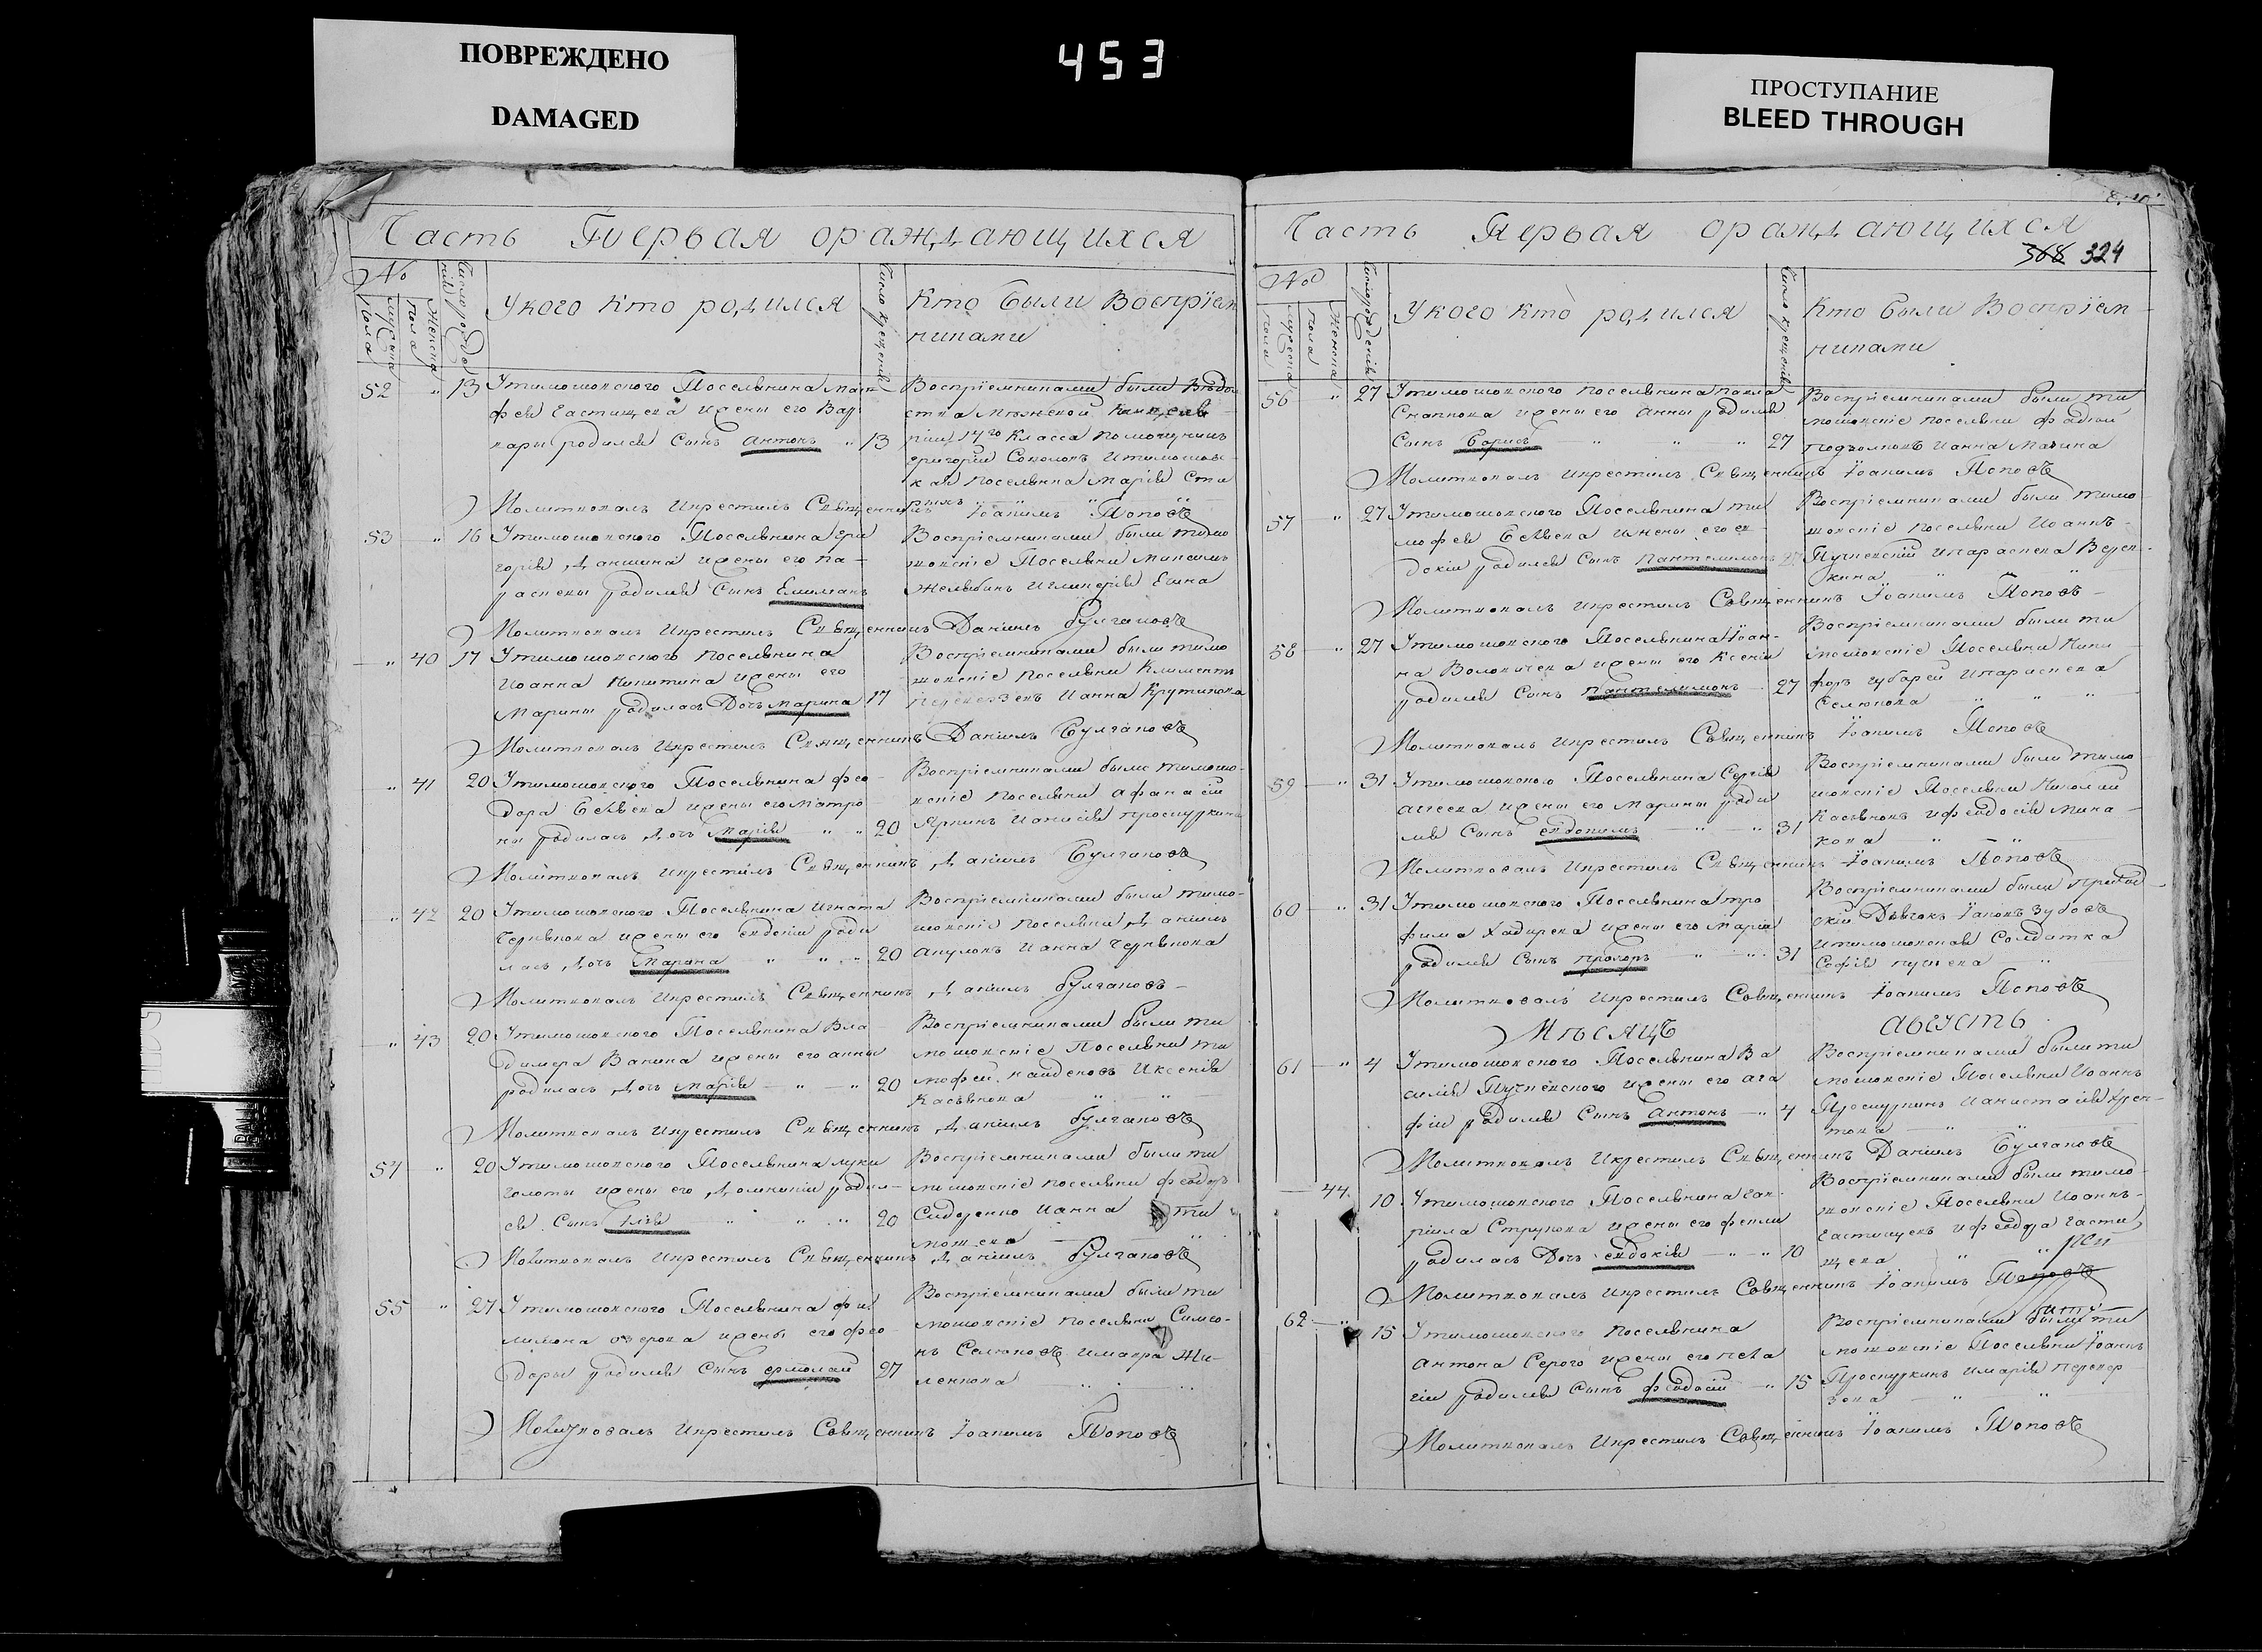 ПОВРЕЖДЕНО
DAMAGED
453
ПРОСТУПАНИЕ
BLEED THROUGH
Часть Первая ораждающихся
№
Мужеска пола
Женска пола
Число рожденія
У кого кто родился
Число крещенія
Кто были Воспріем
никами
52 " 13 Утимошовского Поселянина Мат
фея Частищева ижены его Вар
вары родился Сынъ Антонъ " 13
Воспріемниками были
14го Класса помощникъ
Григорій Соколовъ Итимошов
ская поселянка Марія Ста
рыхъ
Молитвовалъ Икрестилъ Священникъ Іоакимъ Поповъ
53 " 16 Утимошовского Поселянина Гри
горія Даншина ижены его Па
раскевы родился Сынъ Емилианъ
Воспріемниками были тимо
шовскіе Поселяни Максимъ
Желябинъ Игликерія Ечина
Молитвовалъ Икрестилъ Священникъ Даніилъ Булгаковъ
" 40 17 Утимошовского Поселянина
Иоанна Никитина ижены его
Марины родилась Дочь Марина 17
Воспріемниками были тимо
шовскіе поселяни Климентъ
Ианна Крутикова
Молитвовалъ Икрестилъ Священникъ Даніилъ Булгаковъ
" 41 20 Утимошовского Поселянина Фео
дора ижены его Матро
ны родилась Дочь Марія " " 20
Воспріемниками были тимошо
вскіе поселяни Афанасій
Яркинъ Ианисія Проскуркина
Молитвовалъ Икрестилъ Священникъ Даніилъ Булгаковъ
" 42 20 Утимошовского Поселянина Игната
Чернякова ижены его Евдокіи роди
лась Дочь Марина " " " 20
Воспріемниками были тимо
шовскіе поселяни Даніилъ
Акуловъ Ианна Чернякова
Молитвовалъ Икрестилъ Священникъ Даніилъ Булгаковъ
" 43 20 Утимошовского Поселянина Вла
димера Ванина ижены его Анны
родилась Дочь Марія " " 20
Воспріемниками были ти
мошовскіе Поселяни Ти
мофей Найденовъ Иксенія
Касьянова " "
Молитвовалъ Икрестилъ Священникъ Даніилъ Булгаковъ
54 " 20 Утимошовского Поселянина Луки
Голоты ижены его Домникіи родил
ся Сынъ Илія " " " 20
Воспріемниками были ти
мошовскіе поселяни Феодоръ
Сидоренко Ианна Ти
мошева
Молитвовалъ Икрестилъ Священникъ Даніилъ Булгаковъ
55 " 27 Утимошовского Поселянина Фи
лимона Озерова ижены его Фео
доры родился Сынъ Ермолай 27
Воспріемниками были ти
мошовскіе поселяни Симео
нъ Селюковъ Имавра Жи
ленкова
Молитвовалъ Икрестилъ Священникъ Іоакимъ Поповъ
Часть Первая ораждающихся
368 324
№
Мужеска пола
Женска пола
Число рожденія
У кого кто родился
Число крещенія
Кто были Воспріем
никами
56 " 27 Утимошовского поселянина Павла
Снапкова ижены его Анны родился
Сынъ Борисъ " " " 27
Воспріемниками были ти
мошовскіе поселяни Фадей
Подколковъ Ианна Мазина
Молитвовалъ Икрестилъ Священникъ Іоакимъ Поповъ
57 " 27 Утимошовского Поселянина Ти
мофея ижены его Ев
докіи родился Сынъ Пантелимонъ 27
Воспріемниками были тимо
шовскіе поселяни Иоаннъ
Пучневскій Ипараскева
Молитвовалъ Икрестилъ Священникъ Іоакимъ Поповъ
58 " 27 Утимошовского Поселянина Іоан
на ижены его Ксеніи
родился Сынъ Пантелимонъ 27
Воспріемниками были ти
мошовскіе Поселяни Ники
форъ Губарей Ипараскева
Селюкова " " "
Молитвовалъ Икрестилъ Священникъ Іоакимъ Поповъ
59 " 31 Утимошовского Поселянина Сергія
Агнеева ижены его Марины роди
лся Сынъ Евдокимъ " " 31
Воспріемниками были тимо
шовскіе Поселяни Николай
Касьяновъ Ифеодосія Мина
кова " "
Молитвовалъ Икрестилъ Священникъ Іоакимъ Поповъ
60 " 31 Утимошовского Поселянина Тро
фима Хадырева ижены его Маріи
родился Сынъ Прохоръ " " 31
Воспріемниками были
Дьячокъ Іаковъ Зубовъ
Итимошовская Солдатка
Софія Пучнева "
Молитвовалъ Икрестилъ Священникъ Іоакимъ Поповъ
Мѣсяцъ Августъ
61 " 4 Утимошовского Поселянина Ва
силія Пучневского ижены его Ага
фіи родился Сынъ Антонъ " 4
Воспріемниками были ти
мошовскіе Поселяни Иоаннъ
Проскуркинъ Ианастасія
Молитвовалъ Икрестилъ Священникъ Даніилъ Булгаковъ
44 10 Утимошовского Поселянина Гав
ріила Струкова ижены его Феклы
родилась Дочь Евдокія " " 10
Воспріемниками были тимо
шовскіе Поселяни Иоаннъ
Частищевъ Ифеодора Части
щева " "
Молитвовалъ Икрестилъ Священникъ Іоакимъ Поповъ
62 " 15 Утимошовского поселянина
Антона Серого ижены его Пела
гіи родился Сынъ Феодосій " 15
Воспріемниками были ти
мошовскіе Поселяни Іоаннъ
Проскуркинъ Имарія Перевер
зева " "
Молитвовалъ Икрестилъ Священникъ Іоакимъ Поповъ